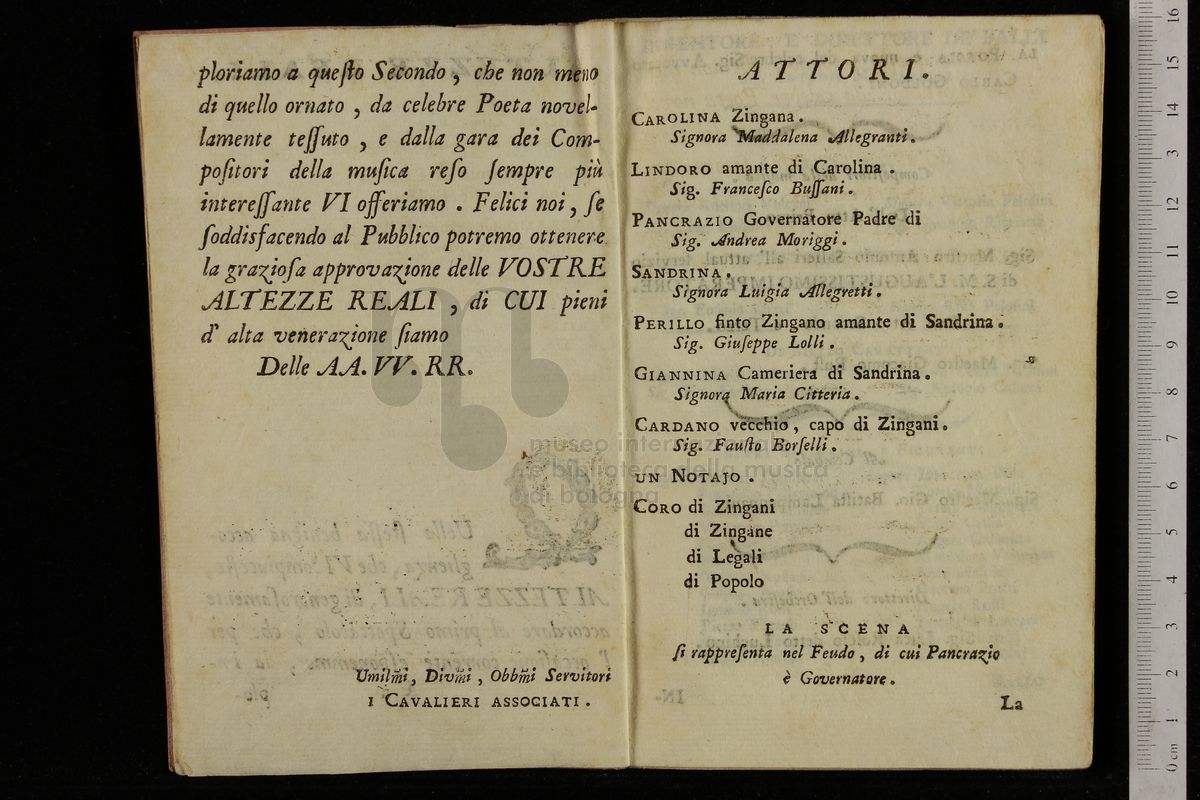 ploriamo a queſto Secondo, che non meno
di quello ornato, da celebre Poeta novel-
lamente teſſuto, e dalla gara dei Com-
poſitori della muſica reſo ſempre più
intereſſante VI offeriamo. Felici noi, ſe
ſoddisfacendo al Pubblico potremo ottenere
la grazioſa approvazione delle VOSTRE
ALTEZZE REALI, di CUI pieni
d' alta venerazione ſiamo
Delle AA. VV. RR.
Umilm̃i, Divm̃i, Obbm̃i Servitori
I CAVALIERI ASSOCIATI.
ATTORI.
CAROLINA Zingana.
Signora Maddalena Allegranti.
LINDORO amante di Carolina.
Sig. Franceſco Buſſani.
PANCRAZIO Governatore Padre di
Sig. Andrea Moriggi.
SANDRINA.
Signora Luigia Allegretti.
PERILLO finto Zingano amante di Sandrina.
Sig. Giuſeppe Lolli.
GIANNINA Cameriera di Sandrina.
Signora Maria Citteria.
CARDANO vecchio, capo di Zingani.
Sig. Fauſto Borſelli.
UN NOTAJO.
CORO di Zingani
di Zingane
di Legali
di Popolo
LA SCENA
ſi rappreſenta nel Feudo, di cui Pancrazio
è Governatore.
La
museo internazionale
e biblioteca della musica
di bologna
0 cm 1 2 3 4 5 6 7 8 9 10 11 12 13 14 15 16